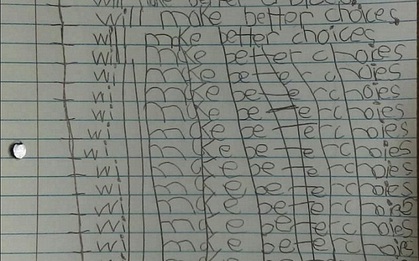 will make better choices
will make better choices.
will make better choices
will make better choies
will make bette choies
will make bette choies
will make bette rc hoies
will make bette rc hoies
will make bette rc hoies
will make bette rc hoies
will make bette rc hoies
will make bette rc hoies
will make bette rc hoies
will make bette rc hoies